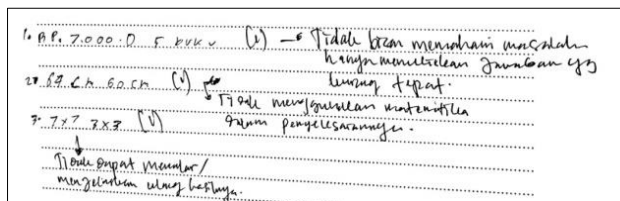 1. RP. 7.000.0 5 buku (1) → Tidak bisa memahami masalah
hanya menuliskan jawaban yg
kurang tepat.
2. 69 cm 60 cm (1) → Tidak menggunakan matematika
dalam penyelesaiannya.
3. 7x7 3x3 (1)
↓
Tidak dapat menalar/
menjelaskan ulang hasilnya.